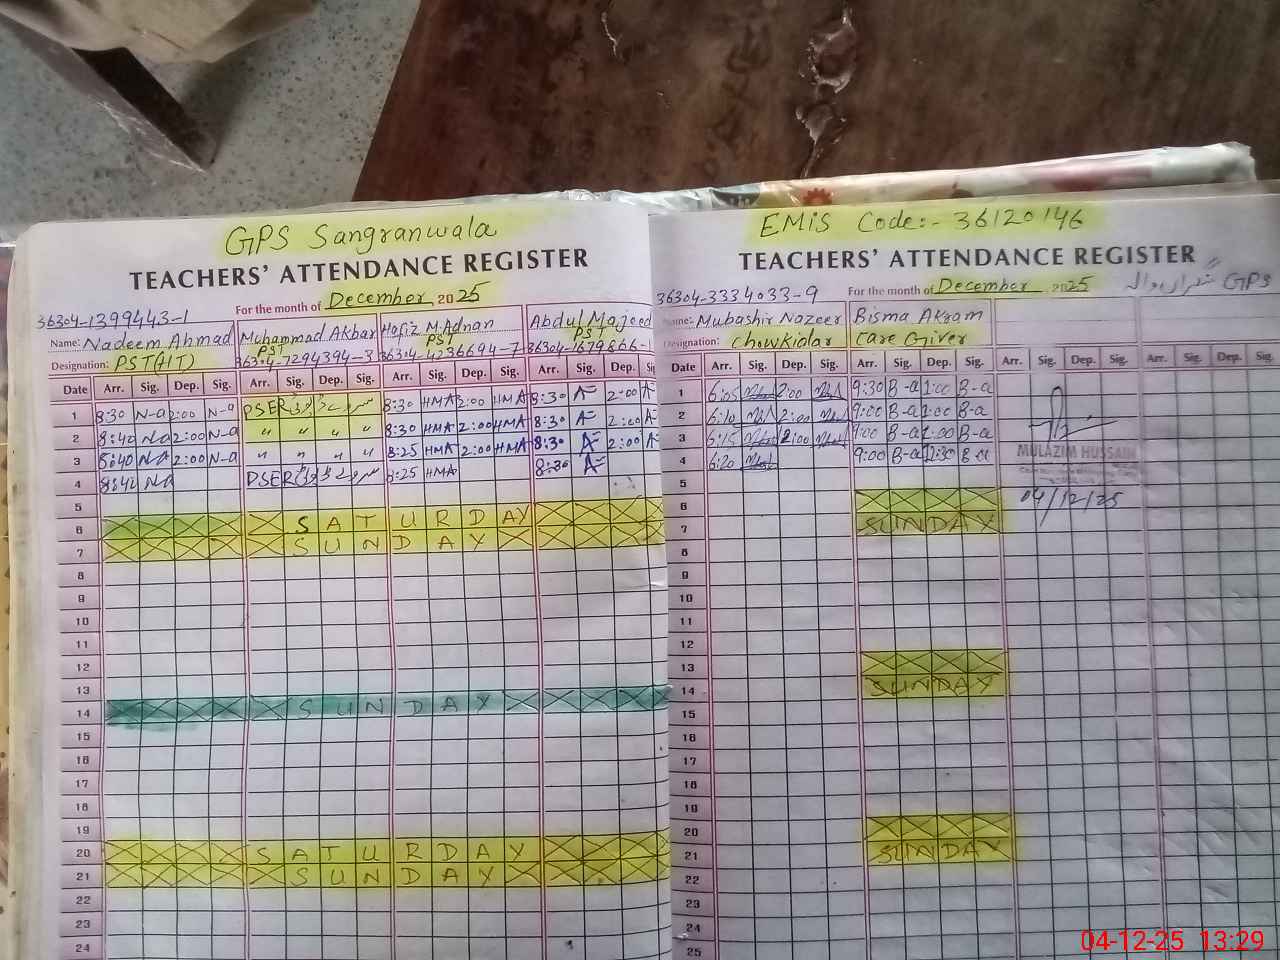 GPS Sangranwala
TEACHERS' ATTENDANCE REGISTER
For the month of December 2025
36304-1399443-1
Name: Nadeem Ahmad Muhammad Akbar Hafiz M.Adnan Abdul Majeed
Designation: PST(HT) PST PST PST
36304-7294394-3 36304-4236694-7 36304-1679866-1
Date Arr. Sig. Dep. Sig. Arr. Sig. Dep. Sig. Arr. Sig. Dep. Sig. Arr. Sig. Dep. Sig
1 8:30 N-a 2:00 N-a PSER 8:30 HMA 2:00 HMA 8:30 A 2:00 A
2 8:40 NA 2:00 N-a " " " " 8:30 HMA 2:00 HMA 8:30 A 2:00 A
3 8:40 NA 2:00 N-a " " " " 8:25 HMA 2:00 HMA 8:30 A 2:00 A
4 8:42 NA PSER 8:25 HMA 8:30 A
5
6 SATURDAY
7 SUNDAY
8
9
10
11
12
13
14 SUNDAY
15
16
17
18
19
20 SATURDAY
21 SUNDAY
22
23
24
EMIS Code:- 36120146
TEACHERS' ATTENDANCE REGISTER
For the month of December 2025 GPS
36304-3334033-9
Name: Mubashir Nazeer Bisma Akram
Designation: Chowkidar Care Giver
Date Arr. Sig. Dep. Sig. Arr. Sig. Dep. Sig. Arr. Sig. Dep. Sig. Arr. Sig. Dep. Sig.
1 6:05 2:00 9:30 B-a 1:00 B-a
2 6:10 2:00 9:00 B-a 1:00 B-a
3 6:15 2:00 9:00 B-a 1:00 B-a
4 6:20 9:00 B-a 1:30 B-a
MULAZIM HUSSAIN
04/12/25
5
6
7 SUNDAY
8
9
10
11
12
13
14 SUNDAY
15
16
17
18
19
20
21 SUNDAY
22
23
24
25
04-12-25 13:29